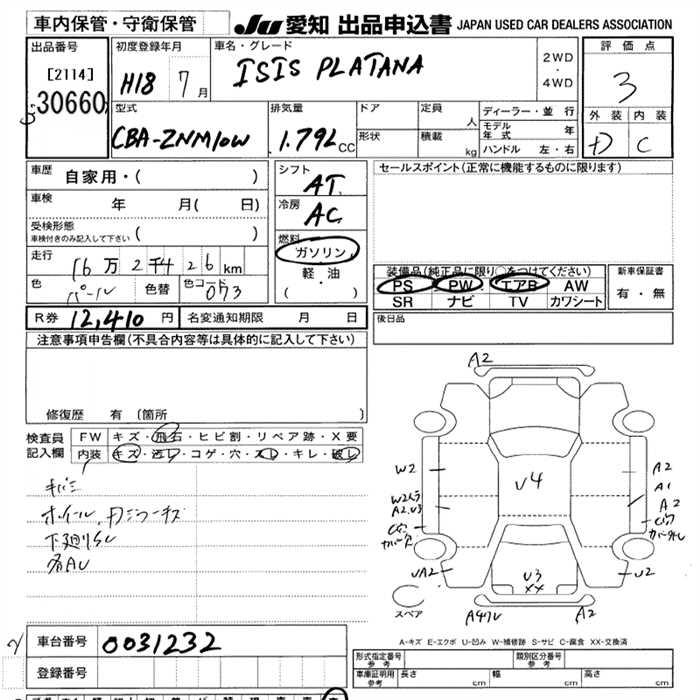 車内保管・守衛保管
JU 愛知 出品申込書 JAPAN USED CAR DEALERS ASSOCIATION
出品番号
[2114]
30660
初度登録年月
H18 7月
車名・グレード
ISIS PLATANA
2WD
・
4WD
評価点
3
外装 内装
D C
型式
CBA-ZNM10W
排気量
1.79L CC
ドア
形状
定員 人
積載 kg
ディーラー・並行
モデル年式 年
ハンドル 左・右
車歴 自家用・( )
車検 年 月( 日)
受検形態
車検付きのみ記入して下さい ( )
走行 16万2千426km
色 パール 色替 色コード 073
シフト
AT
冷房
AC
燃料
ガソリン
・
軽・油
( )
セールスポイント(正常に機能するものに限ります)
装備品(純正品に限り○をつけてください)
PS PW エアB AW
SR ナビ TV カワシート
新車保証書
有・無
R券 12,410円 名変通知期限 月 日
後日品
注意事項申告欄(不具合内容等は具体的に記入して下さい)
修復歴 有〔箇所 〕
検査員記入欄
FW キズ・飛石・ヒビ割・リペア跡・X要
内装 キズ・汚レ・コゲ・穴・スレ・キレ・破レ
下廻りSU
各AU
A2
W2
A2.U3
U4
A2
A1
A2
UA2
U3
XX
U2
A2
スペア
A-キズ E-エクボ U-凹み W-補修跡 S-サビ C-腐食 XX-交換済
車台番号 0031232
登録番号
形式指定番号 参考
類別区分番号 参考
車庫証明用 参考 長さ cm 幅 cm 高さ cm